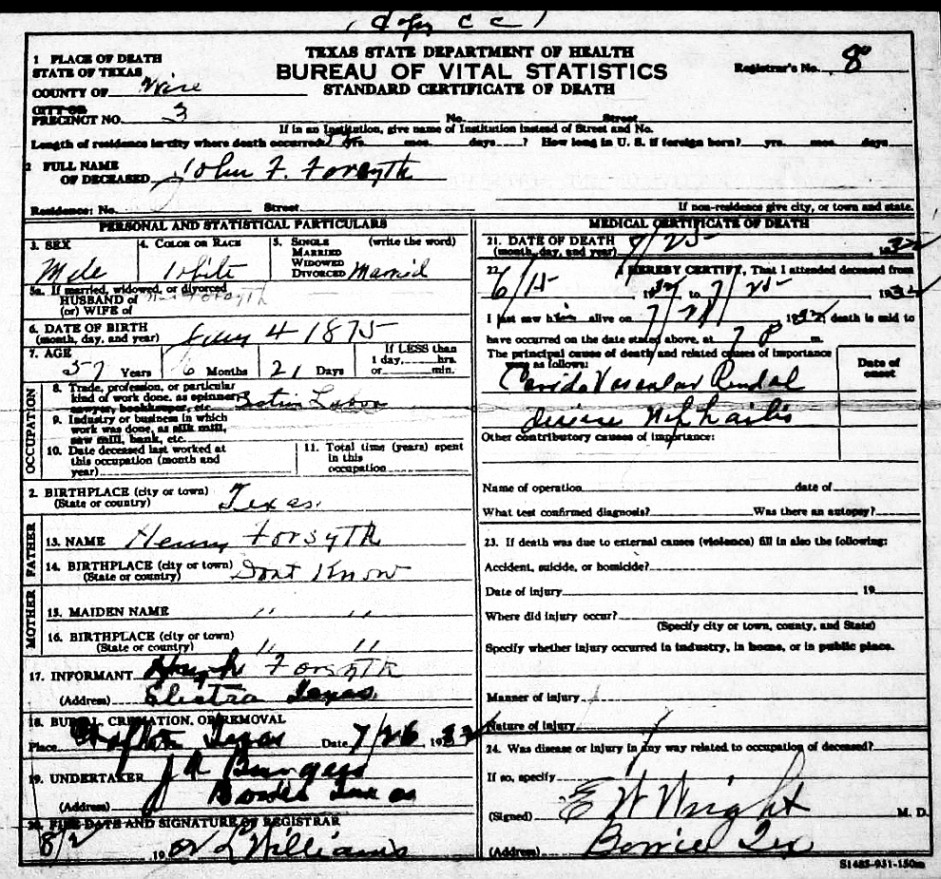 (Copy C C)
TEXAS STATE DEPARTMENT OF HEALTH
BUREAU OF VITAL STATISTICS
STANDARD CERTIFICATE OF DEATH
Registrar's No. 8
1 PLACE OF DEATH
STATE OF TEXAS
COUNTY OF Wise
CITY OR
PRECINCT NO. 3 No. Street
If in an Institution, give name of Institution instead of Street and No.
Length of residence in city where death occurred yrs. mos. days ? How long in U. S. if foreign born? yrs. mos. days
2 FULL NAME
OF DECEASED John F. Forsyth
Residence: No. Street If non-residence give city, or town and state.
PERSONAL AND STATISTICAL PARTICULARS
3. SEX Male
4. COLOR OR RACE White
5. SINGLE (write the word)
MARRIED
WIDOWED
DIVORCED Married
5a. If married, widowed, or divorced
HUSBAND OF Forsyth
(or) WIFE of
6. DATE OF BIRTH
(month, day, and year) Jany 4 1875
7. AGE 57 Years 6 Months 21 Days
If LESS than
1 day, hrs.
or min.
OCCUPATION
8. Trade, profession, or particular
kind of work done, as spinner,
sawyer, bookkeeper, etc. Labor
9. Industry or business in which
work was done, as silk mill,
saw mill, bank, etc.
10. Date deceased last worked at
this occupation (month and
year)
11. Total time (years) spent
in this
occupation
2. BIRTHPLACE (city or town)
(State or country) Texas
FATHER
13. NAME Henry Forsyth
14. BIRTHPLACE (city or town)
(State or country) Dont Know
MOTHER
15. MAIDEN NAME " "
16. BIRTHPLACE (city or town)
(State or country) " "
17. INFORMANT Hugh Forsyth
(Address) Electra Texas
18. BURIAL, CREMATION, OR REMOVAL
Place Crafton Texas Date 7/26 1932
19. UNDERTAKER J A Burgess
(Address) Bowie Texas
20. FILE DATE AND SIGNATURE OF REGISTRAR
8/2 19 Williams
MEDICAL CERTIFICATE OF DEATH
21. DATE OF DEATH
(month, day, and year) 7/25 1932
22. I HEREBY CERTIFY, That I attended deceased from
6/15 1932 to 7/25 1932
I last saw him alive on 7/25 1932, death is said to
have occurred on the date stated above, at 7 P m.
The principal cause of death and related causes of importance
were as follows:
Date of
onset
Cardio Vascular Rendal
disease Nephritis
Other contributory causes of importance:
Name of operation date of
What test confirmed diagnosis? Was there an autopsy?
23. If death was due to external causes (violence) fill in also the following:
Accident, suicide, or homicide?
Date of injury 19
Where did injury occur?
(Specify city or town, county, and State)
Specify whether injury occurred in industry, in home, or in public place.
Manner of injury
Nature of injury
24. Was disease or injury in any way related to occupation of deceased?
If so, specify
(Signed) E W Wright M. D.
(Address) Bowie Tex
S1485-931-150m